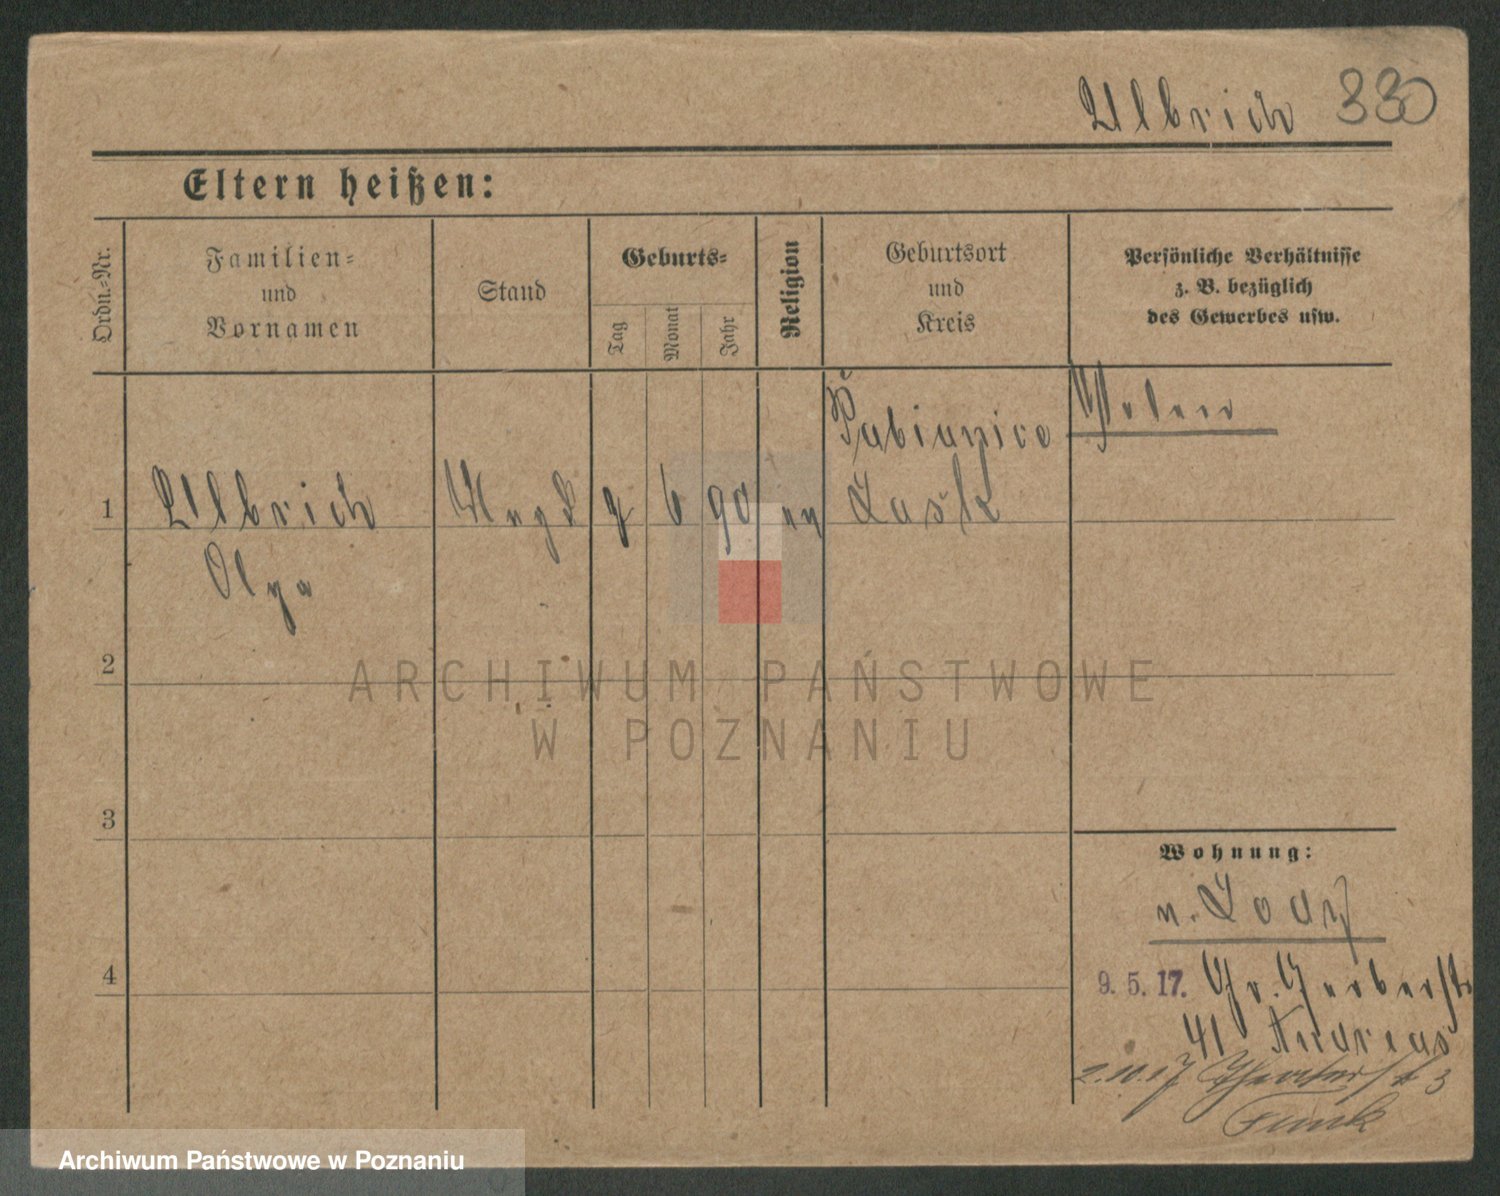 Ulbrich 330
Eltern heißen:
Ordn.-Nr.
Familien-
und
Vornamen
Stand
Geburts-
Tag
Monat
Jahr
Religion
Geburtsort
und
Kreis
Persönliche Verhältnisse
z. B. bezüglich
des Gewerbes usw.
Pabianice
Polen
1 Ulbrich 6 90 Lask
Olga
2
ARCHIWUM PAŃSTWOWE
W POZNANIU
3
Wohnung:
v. Lodz
4
9. 5. 17. Gr. Gerberstr
41 Andreas
2.10.17 Theaterstr 3
Funk
Archiwum Państwowe w Poznaniu